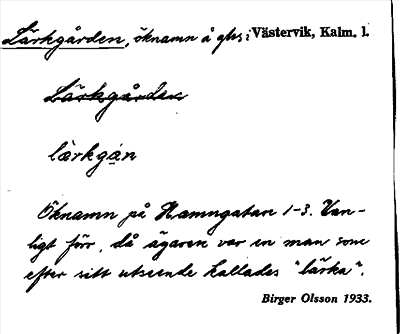 Lärkgården, öknamn å ghs i Västervik, Kalm. l.
Lärkgården
lärkgan
Öknamn på Hamngatan 1-3. Van-
ligt förr, då ägaren var en man som
efter sitt utseende kallades "lärka".
Birger Olsson 1933.